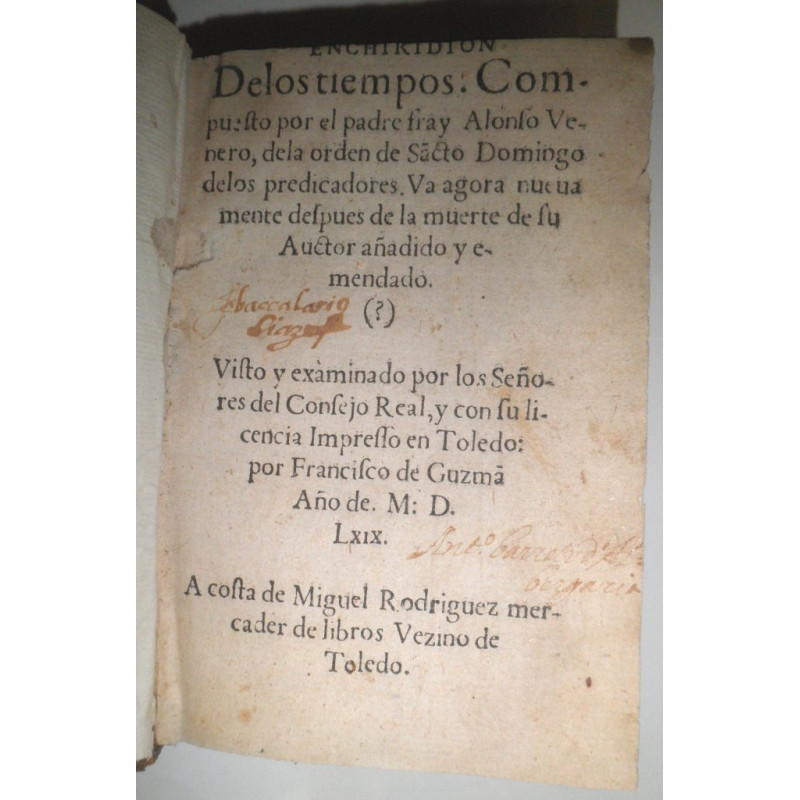 ENCHIRIDION
Delos tiempos: Com-
puesto por el padre fray Alonſo Ve-
nero, dela orden de Sācto Domingo
delos predicadores. Va agora nueua
mente deſpues de la muerte de ſu
Auctor añadido y e-
mendado.
(?)
baccalario
Viſto y exàminado por los Seño-
res del Conſejo Real, y con ſu li-
cencia Impreſſo en Toledo:
por Franciſco de Guzmā
Año de. M: D.
Lxix.
Ant.º
A coſta de Miguel Rodriguez mer-
cader de libros Vezino de
Toledo.